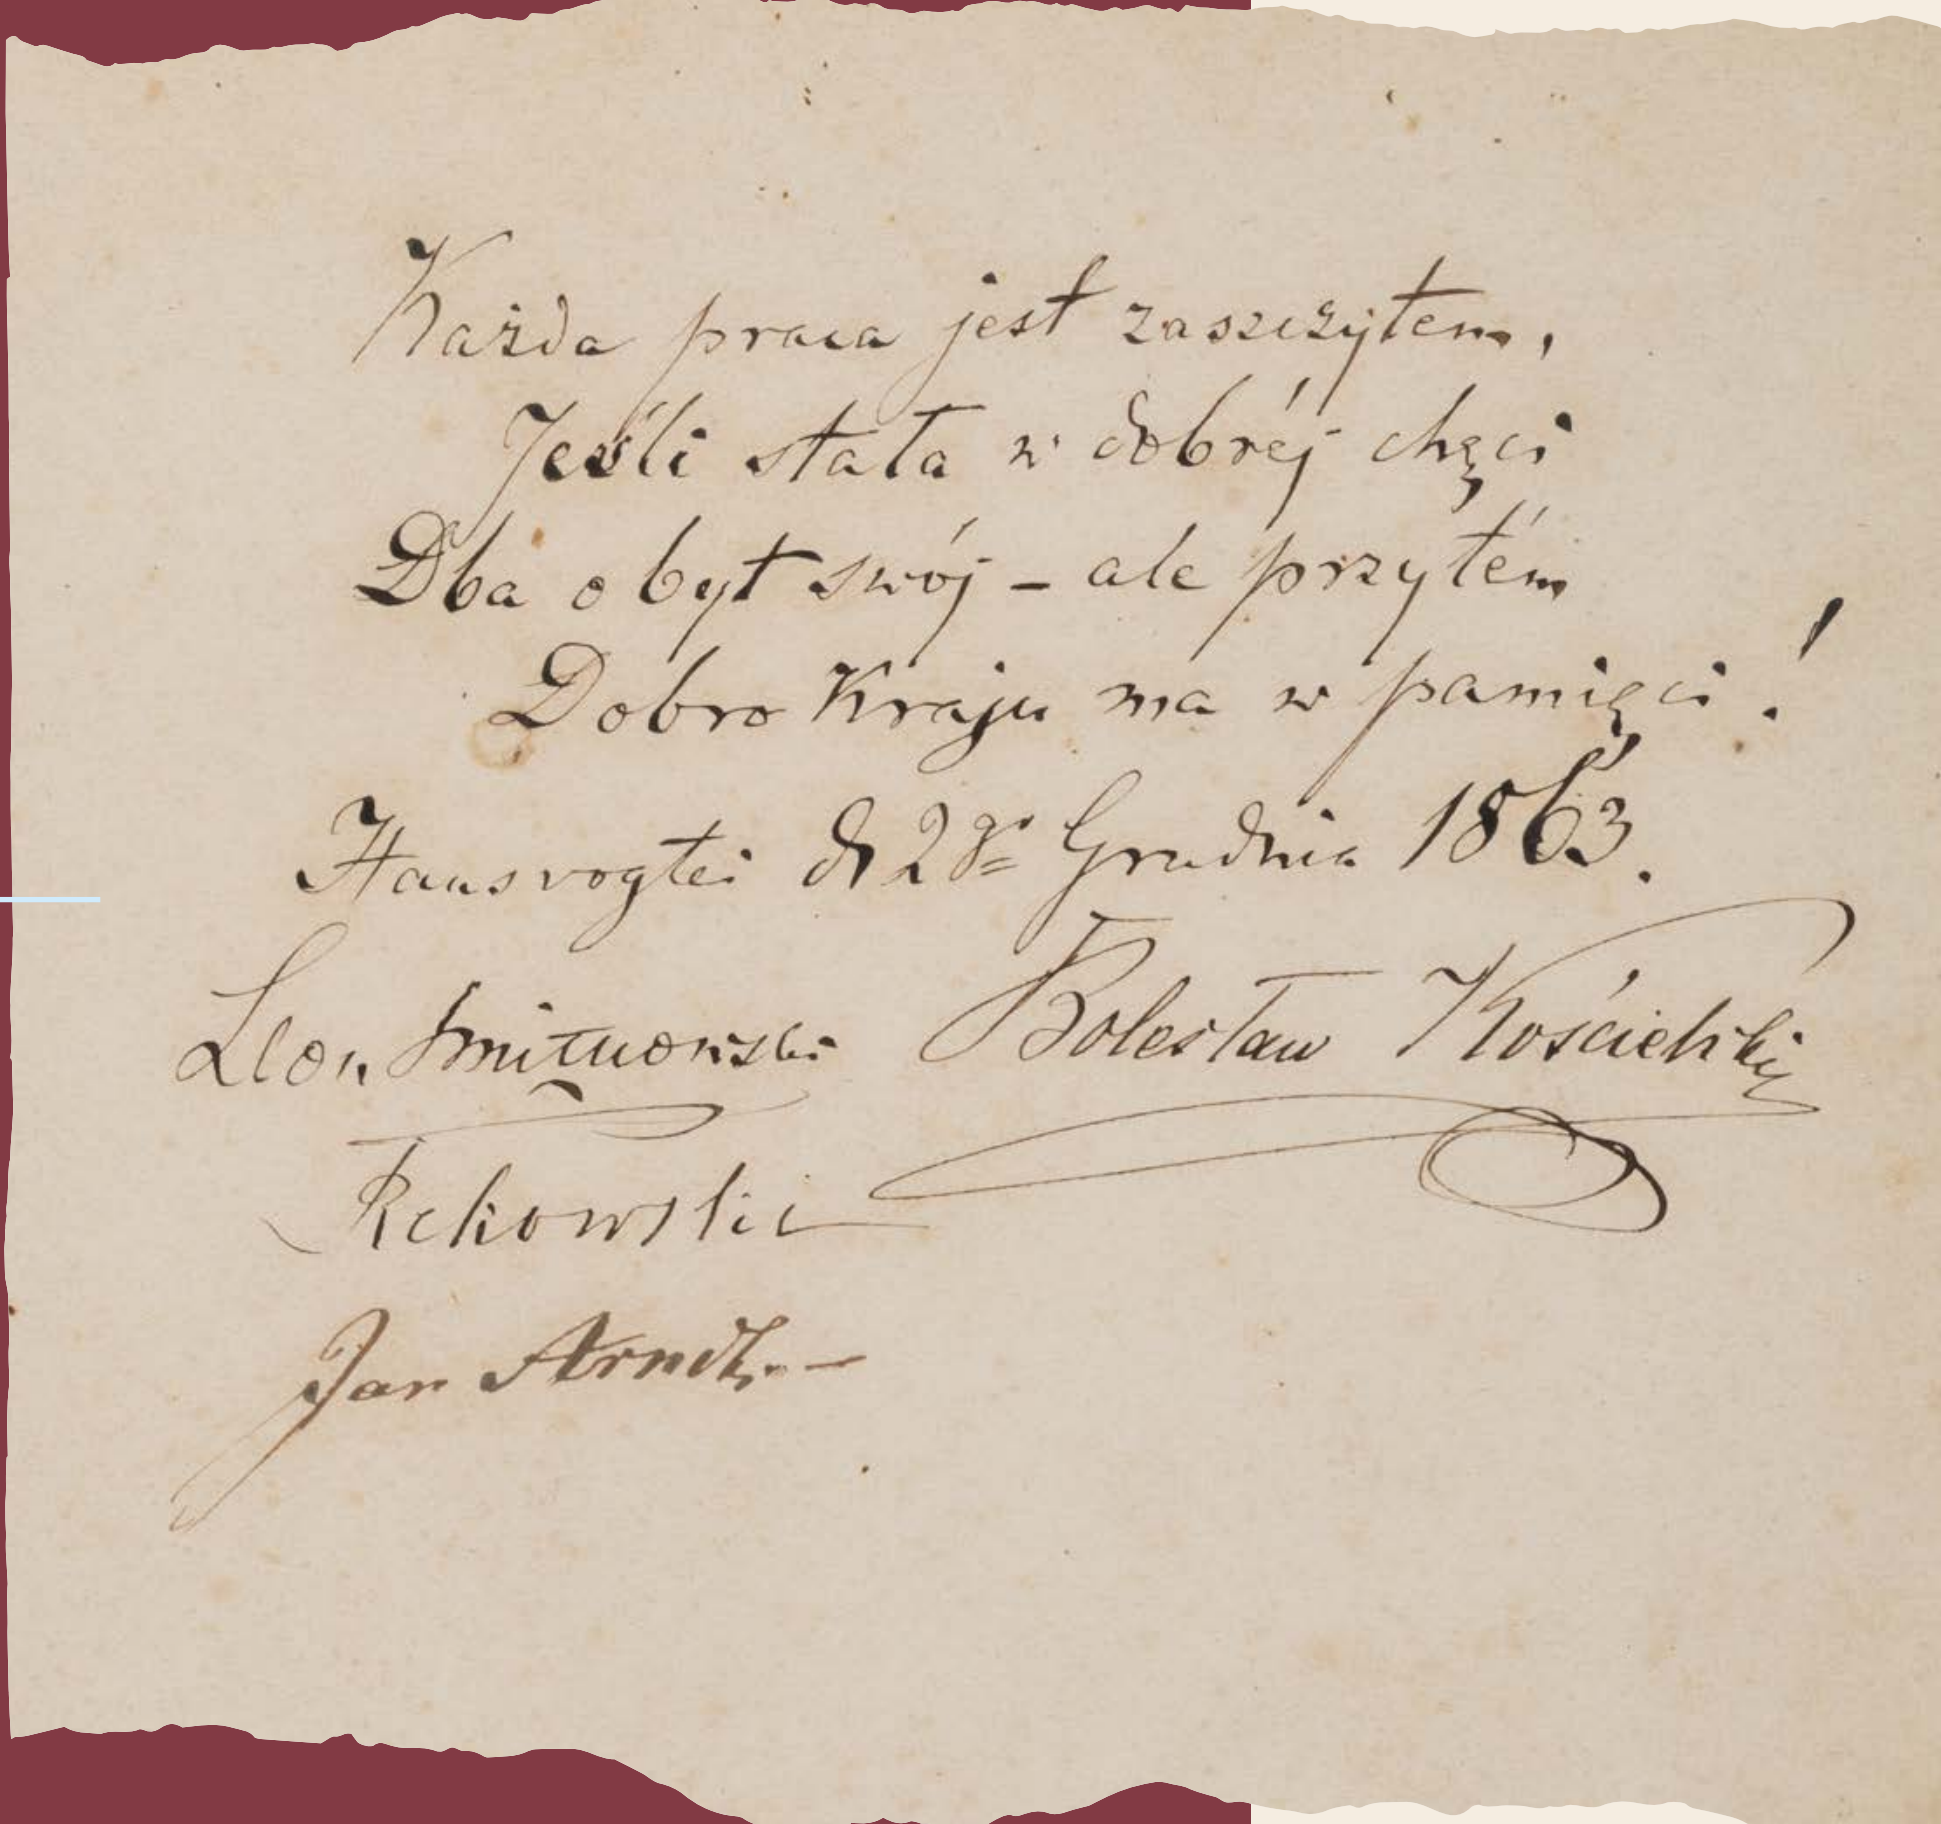 Każda praca jest zaszczytem,
Jeśli stała w dobréj chęci
Dba o byt swój – ale przytém
Dobro Kraju ma w pamięci!
Hausvogtei d 2go Grudnia 1863.
Leon Bolesław Kościelski
Rekowski
Jan Arndt. –